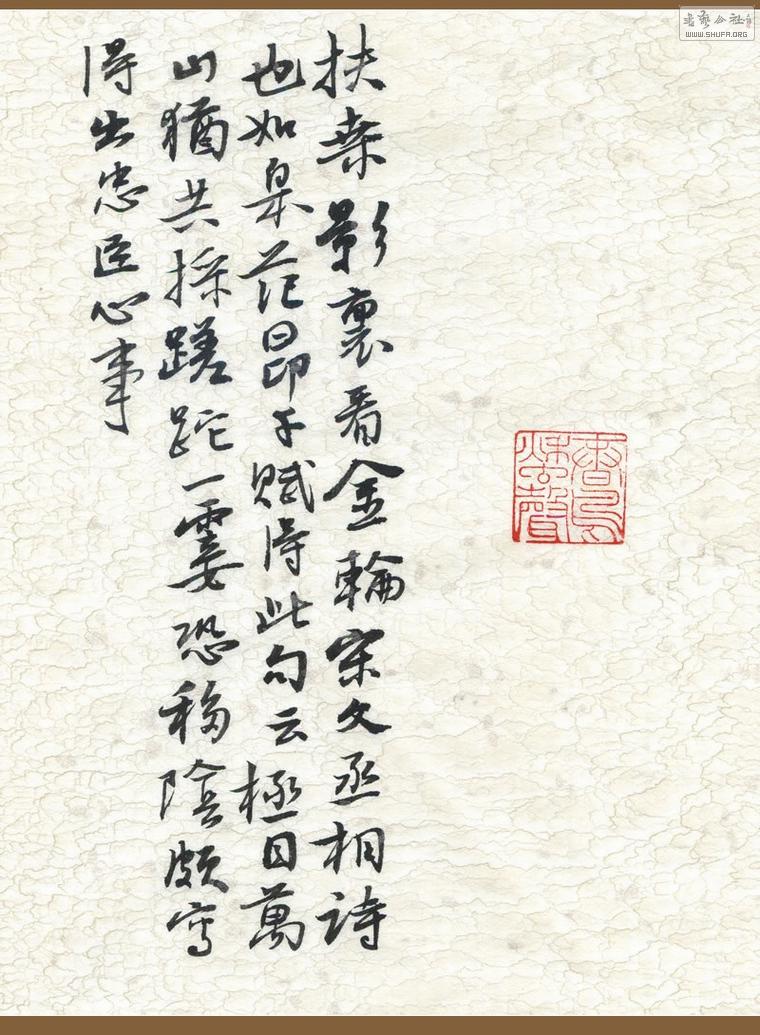 扶桑影裏看金輪宋文丞相詩
也如皋范昂千賦得此句云極目萬
山猶共採蹉跎一霎恐移陰頗寫
得出忠臣心事
書藝公社
WWW.SHUFA.ORG